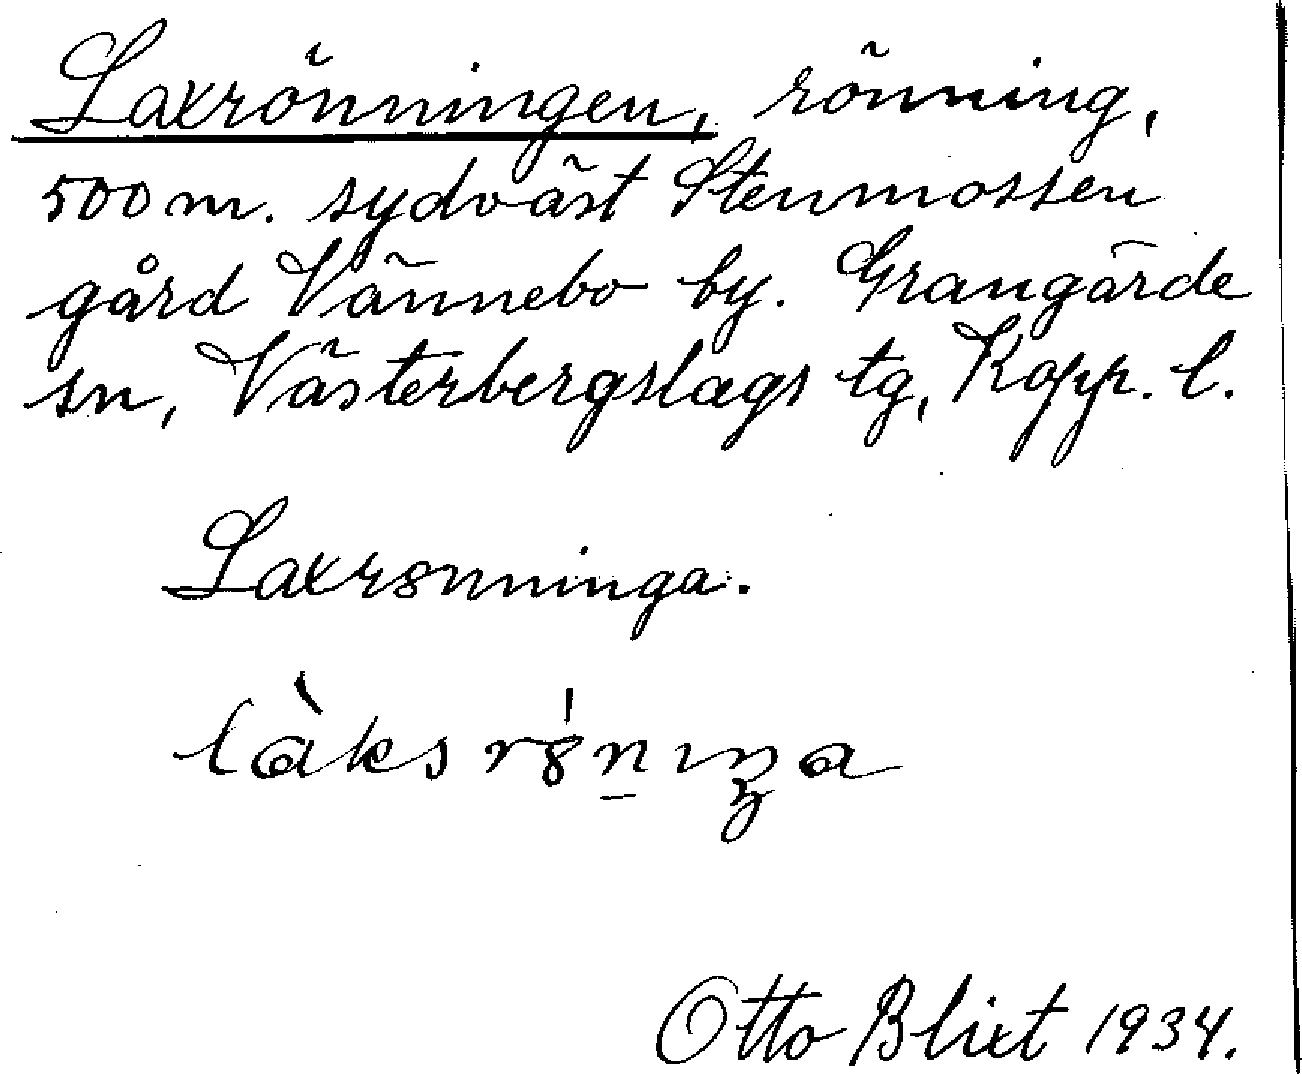 Laxrönningen, rönning,
500 m. sydväst Stenmossen
gård Vännebo by. Grangärde
sn, Västerbergslags tg, Kopp. l.
Laxrønninga.
làksrǿn̲ıŋa
Otto Blixt 1934.